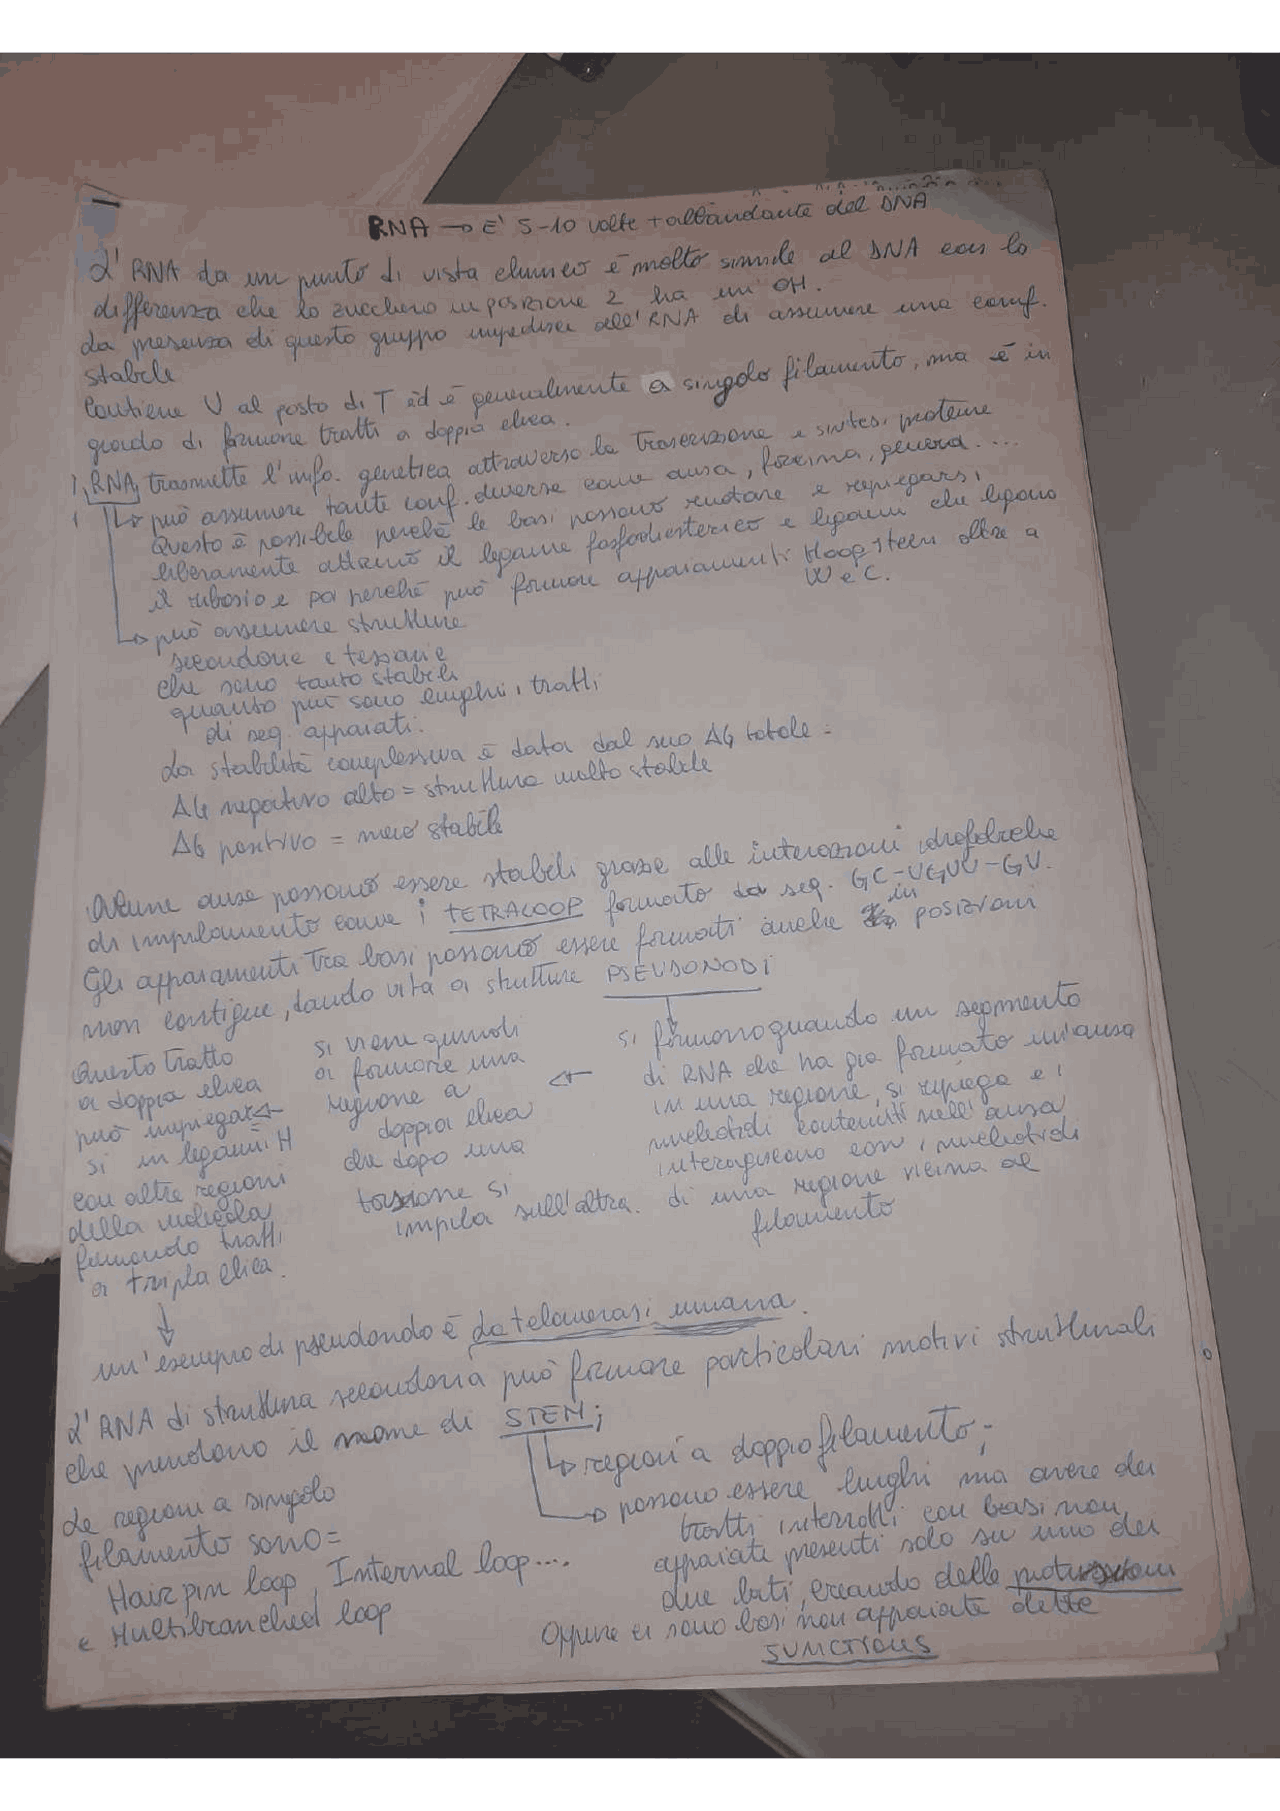 RNA → E' 5-10 volte + abbandante del DNA
L'RNA da un punto di vista chimico è molto simile al DNA con la
differenza che lo zucchero in posizione 2 ha un OH.
La presenza di questo gruppo impedisce all'RNA di assumere una conf.
stabile
Contiene U al posto di T ed è generalmente a singolo filamento, ma è in
grado di formare tratti a doppia elica.
L'RNA trasmette l'info. genetica attraverso la trascrizione e sintesi proteine
↳ può assumere tante conf. diverse come ansa, forcina, ...
Questo è possibile perchè le basi possono ruotare e ripiegarsi
liberamente attorno il legame fosfodiesterico e legami che legano
il ribosio e poi perchè può formare appaiamenti Hoogsteen oltre a
W e C.
↳ può assumere strutture
secondarie e terziarie
che sono tanto stabili
quanto più sono lunghi i tratti
di seq. appaiati.
La stabilità complessiva è data dal suo ΔG totale =
ΔG negativo alto = struttura molto stabile
ΔG positivo = meno stabile
Alcune anse possono essere stabili grazie alle interazioni idrofobiche
di impilamento come i TETRALOOP formato da seq. GC-UGUU-GU.
Gli appaiamenti tra basi possono essere formati anche in posizioni
non contigue, dando vita a strutture PSEUDONODI
si formano quando un segmento
di RNA che ha già formato un'ansa
in una regione, si ripiega e i
nucleotidi contenuti nell'ansa
interagiscono con i nucleotidi
di una regione vicina al
filamento
←
si viene quindi
a formare una
regione a
doppia elica
che dopo una
torsione si
impila sull'altra.
Questo tratto
a doppia elica
può impegnar ←
si in legami H
con altre regioni
della molecola
formando tratti
a tripla elica.
↓
un'esempio di pseudondo è la telomerasi umana.
L'RNA di struttura secondaria può formare particolari motivi strutturali
che prendono il nome di STEM;
↳ regioni a doppio filamento;
↳ possono essere lunghi ma avere dei
tratti interrotti con basi non
appaiate presenti solo su uno dei
due lati, creando delle
Oppure ci sono basi non appaiate dette
JUNCTIONS
Le regioni a singolo
filamento sono =
Hairpin loop, Internal loop....
e Multibranched loop